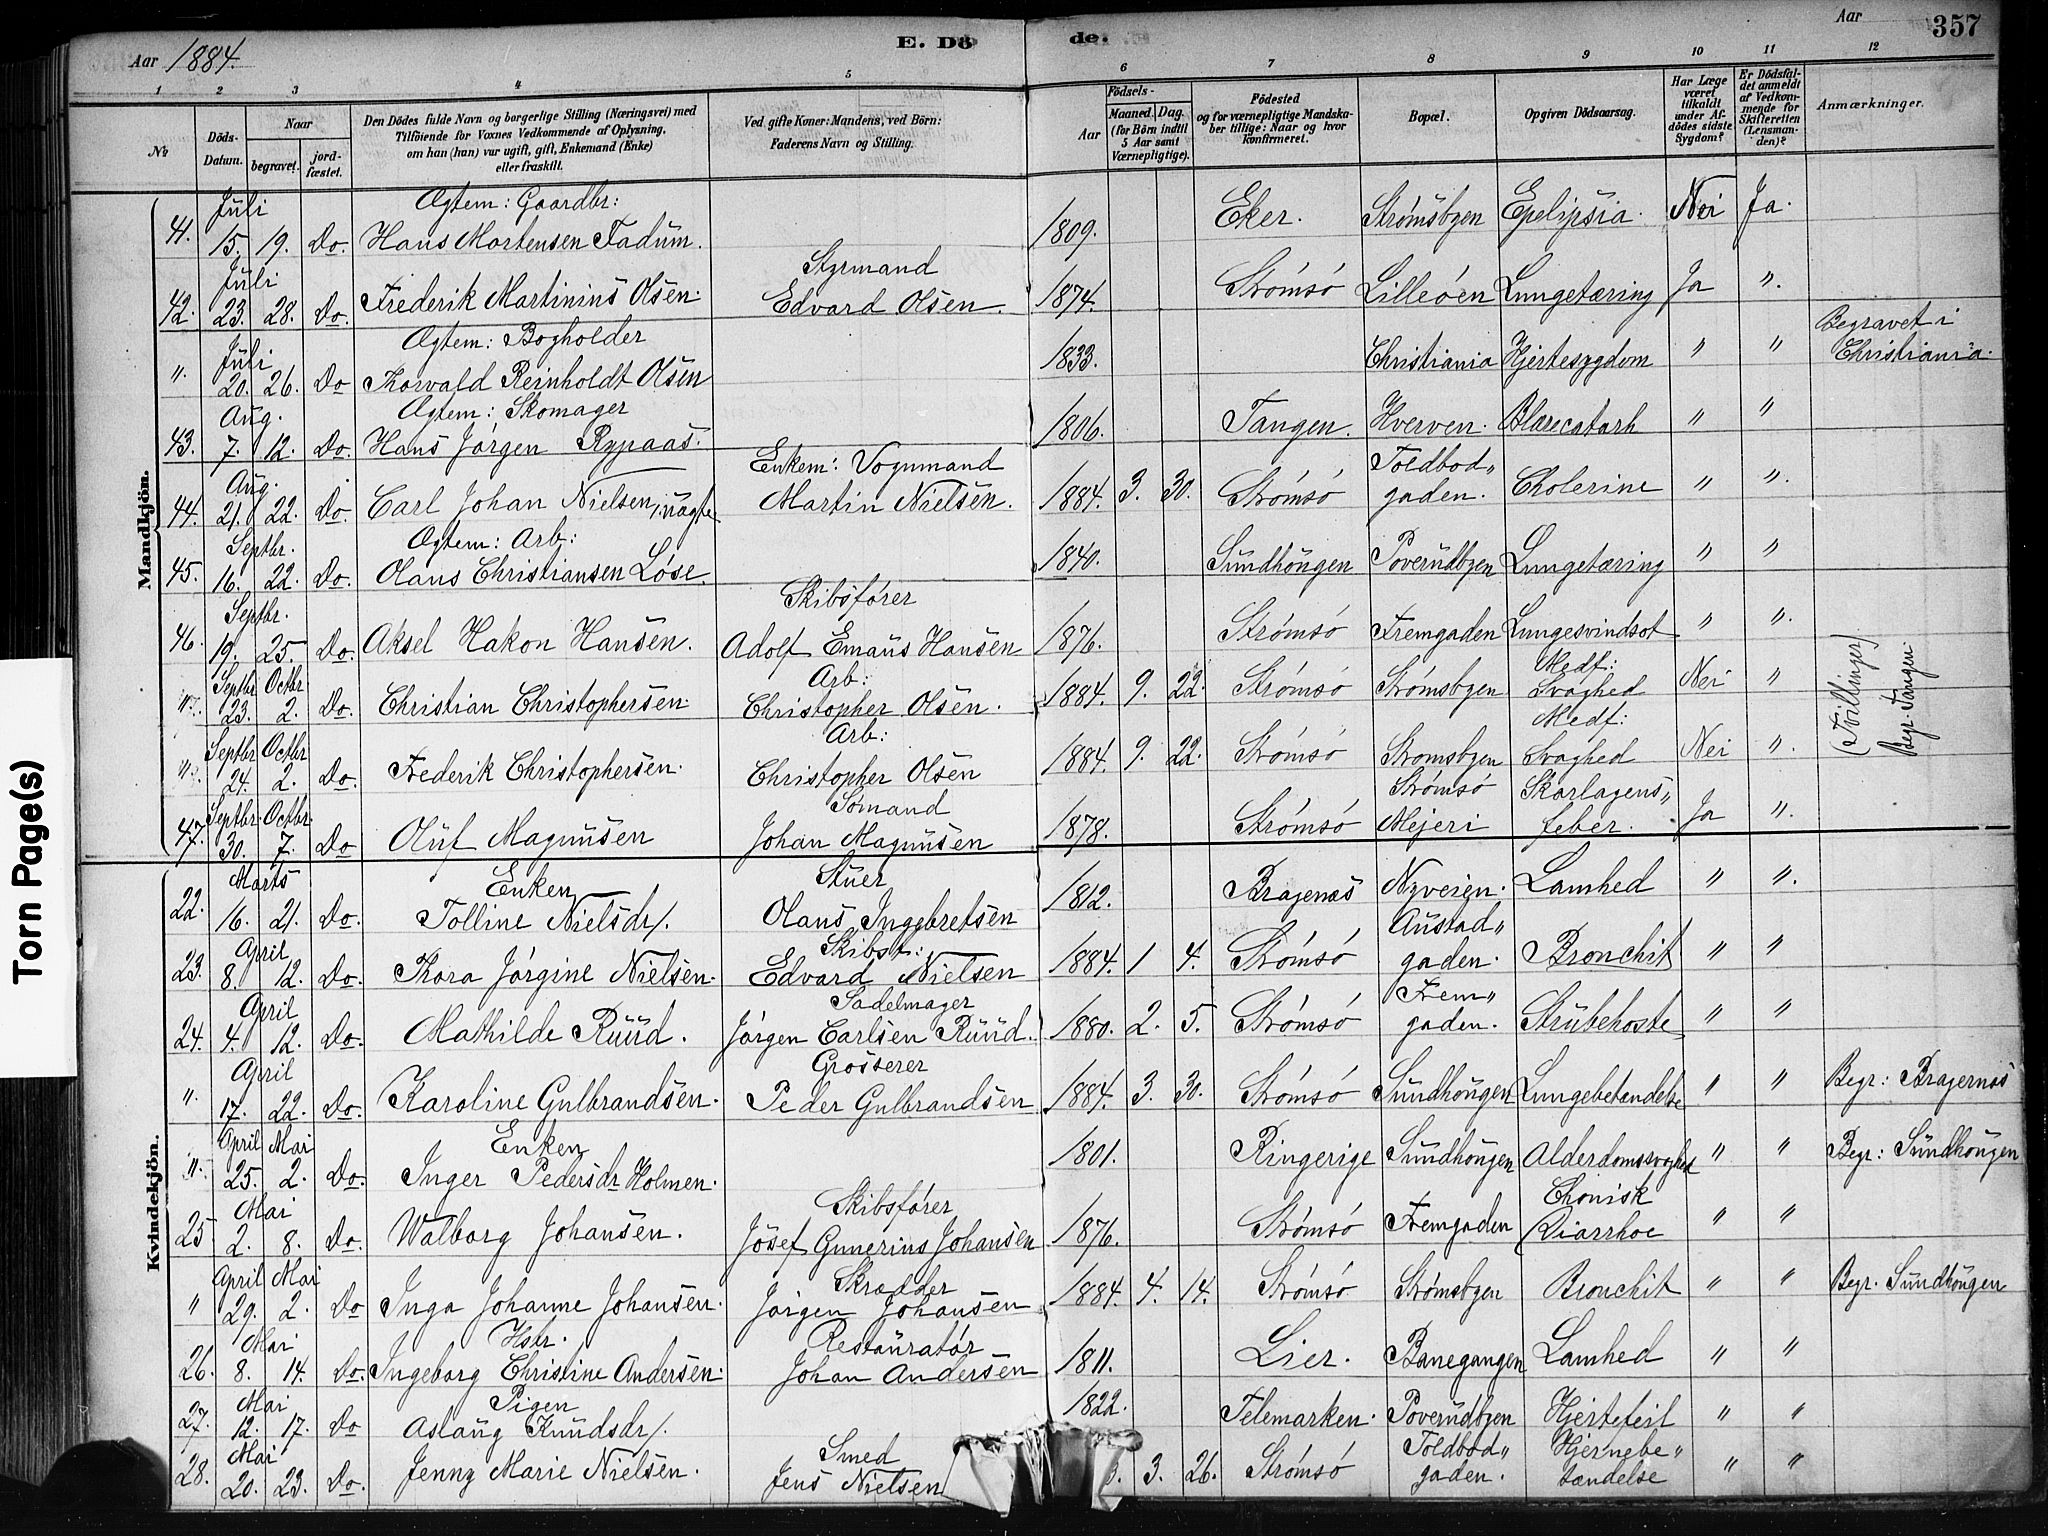 Aar 1884.
E. Dö de.
Aar
357
1 2 3 4 5 6 7 8 9 10 11 12
No
Döds-Datum.
Naar
begravet.
jord-fæstet.
Den Dödes fulde Navn og borgerlige Stilling (Næringsvei) med
Tilföiende for Voxnes Vedkommende af Oplysning,
om han (hun) var ugift, gift, Enkemand (Enke)
eller fraskilt.
Ved gifte Koner: Mandens, ved Börn:
Faderens Navn og Stilling.
Födsels-
Aar
Maaned. Dag.
(for Börn indtil
5 Aar samt
Værnepligtige).
Födested
og for værnepligtige Mandska-
ber tillige: Naar og hvor
konfirmeret.
Bopæl.
Opgiven Dödsaarsag.
Har Læge
været
tilkaldt
under Af-
dödes sidste
Sygdom?
Er Dödsfal-
det anmeldt
af Vedkom-
mende for
Skifteretten
(Lensman-
den)?
Anmærkninger.
Mandkjön.
Juli Ægtem: Gaardbr:
41. 15. 19. Do. Hans Mortensen Fadum. 1809. Eker. Strømsbyen Epelipsia. Nei Ja.
Juli Styrmand
42. 23. 28. Do. Frederik Martinius Olsen. Edvard Olsen. 1874. Strømsø Lilleøen Lungetæring Ja ".
Juli Ægtem: Bogholder Begravet i
". 20. 26. Do Thorvald Reinholdt Olsen 1833. Christiania Hjertesygdom " " Christiania.
Aug. Ægtem: Skomager
43. 7. 12. Do. Hans Jørgen Rypaas. 1806. Tangen. Hverven. Blærecatarh " "
Aug. Enkem: Vognmand Toldbod"
44. 21. 22. Do. Carl Johan Nielsen, uægte Martin Nielsen. 1884. 3. 30. Strømsø gaden. Cholerine " ".
Septbr. Ægtem: Arb:
45. 16. 22. Do. Olaus Christiansen Løse. 1840. Sundhougen Poverudbyen Lungetæring " "
Septbr. Skibsfører
46. 19. 25. Do. Aksel Hakon Hansen. Adolf Emaus Hansen 1876. Strømsø Fremgaden Lungesvindsot " ".
Septbr Octbr Arb: Medf:
" 23. 2. Do. Christian Christophersen. Christopher Olsen. 1884. 9. 22. Strømsø Strømsbyen Svaghed Nei "
(Tvillinger)
Begr. Tangen
Septbr Octbr Arb: Medf:
" 24. 2. Do. Frederik Christophersen. Christopher Olsen 1884. 9. 22. Strømsø Strømsbyen Svaghed Nei ".
Septbr. Octbr. Sømand Strømsø Skarlagens"
47. 30. 7. Do Oluf Magnusen Johan Magnusen 1878. Strømsø Mejeri feber. Ja ".
Kvindekjön.
Marts Enken Stuer
22. 16. 21. Do. Tolline Nielsdr. Olaus Ingebretsen 1812. Bragenæs Nyveien. Lamhed " ".
April Skibst: Austad"
23. 8. 12. Do. Thora Jørgine Nielsen. Edvard Nielsen 1884. 1 4. Strømsø gaden. Bronchit " "
April Sadelmager Frem"
24. 4. 12. Do. Mathilde Ruud. Jørgen Carlsen Ruud. 1880. 2. 5. Strømsø gaden. Strubehoste " "
April Grosserer
". 17. 22. Do. Karoline Gulbrandsen. Peder Gulbrandsen 1884. 3. 30. Strømsø Sundhougen Lungebetændelse " " Begr: Bragernæs
April Mai Enken
". 25. 2. Do. Inger Pedersdr Holmen. 1801. Ringerige Sundhougen Alderdomssvaghed " " Begr: Sundhougen
Mai Skibsfører Chonisk
25 2. 8. Do. Walborg Johansen. Josef Gunerius Johansen 1876. Strømsø Fremgaden Diarrhoe " "
April Mai Skrædder
" 29. 2. Do Inga Johanne Johansen. Jørgen Johansen 1884. 4. 14. Strømsø Strømsbyen Bronchit " " Begr. Sundhougen
Mai Hstr. Restauratør
26. 8. 14. Do. Ingeborg Christine Andersen. Johan Andersen 1811. Lier. Banegangen Lamhed " "
Mai Pigen
27. 12. 17. Do Aslaug Knudsdr. 1822. Telemarken. Poverudbyen Hjertefeil " "
Mai Smed Toldbod" Hjernebe"
28. 20. 23. Do Jenny Marie Nielsen. Jens Nielsen 3. 3. 26. Strømsø gaden. tændelse " "
Torn Page(s)